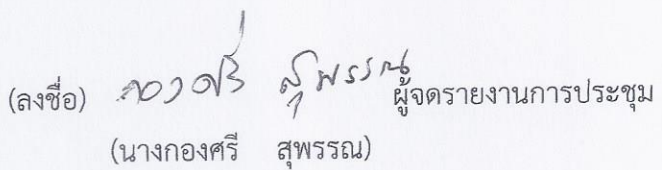 (ลงชื่อ) กองศรี สุพรรณ ผู้จดรายงานการประชุม
(นางกองศรี สุพรรณ)